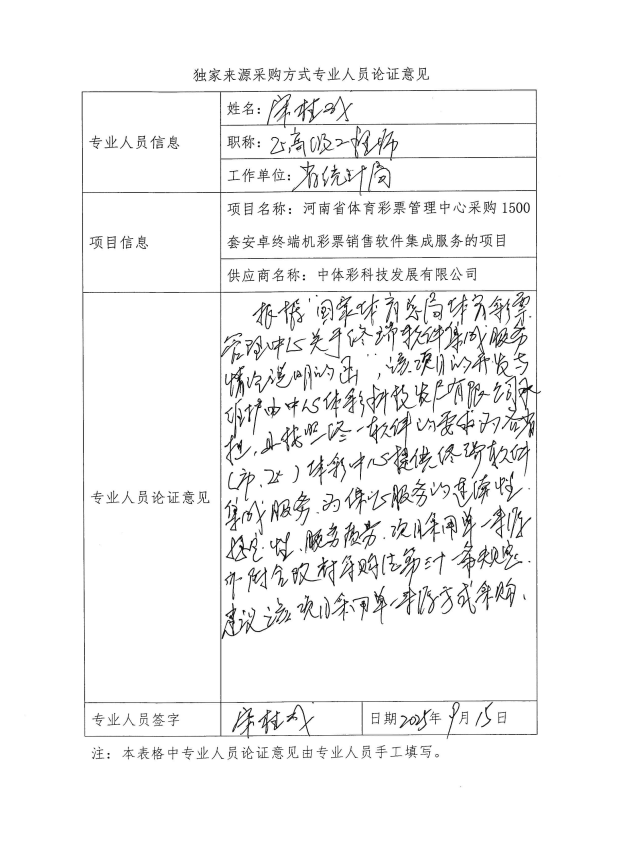 独家来源采购方式专业人员论证意见
专业人员信息
姓名：宋桂成
职称：正高级工程师
工作单位：省统计局
项目信息
项目名称：河南省体育彩票管理中心采购 1500
套安卓终端机彩票销售软件集成服务的项目
供应商名称：中体彩科技发展有限公司
专业人员论证意见
根据“国家体育总局体育彩票
管理中心关于终端软件集成服务
情况说明的函”，该项目的开发与
维护由中体彩科技发展有限公司承
担，且按照统一软件的要求为各省
（市、区）体彩中心提供终端软件
集成服务。为保证服务的连续性、
稳定性、服务质量，项目采用单一来源
符合政府采购法第三十一条规定。
建议该项目采用单一来源方式采购。
专业人员签字
宋桂成
日期 2025年 9月 15日
注：本表格中专业人员论证意见由专业人员手工填写。